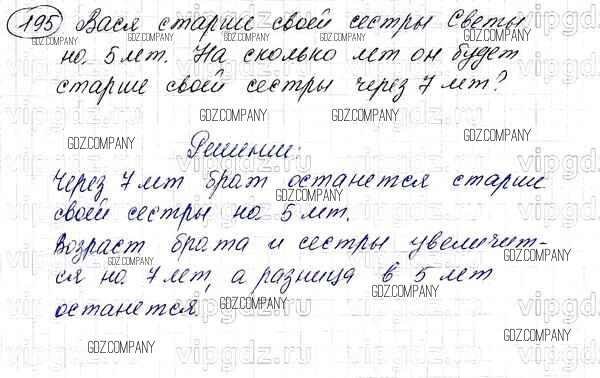 195 Вася старше своей сестры Светы
на 5 лет. На сколько лет он будет
старше своей сестры через 7 лет?
Решение:
Через 7 лет брат останется старше
своей сестры на 5 лет.
Возраст брата и сестры увеличит-
ся на 7 лет, а разница в 5 лет
останется.